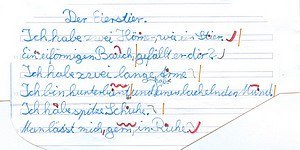 Der Eierstier.
Ich habe zwei Hörner wie ein Stier.
Ein eiförmigen Bauch gefällt er dir?
Ich habe zwei lange Arme?
Ich bin kunterbunt und einen lachelnden Mund
Ich habe spitze Schuhe.
Man lässt mich gern in Ruhe.